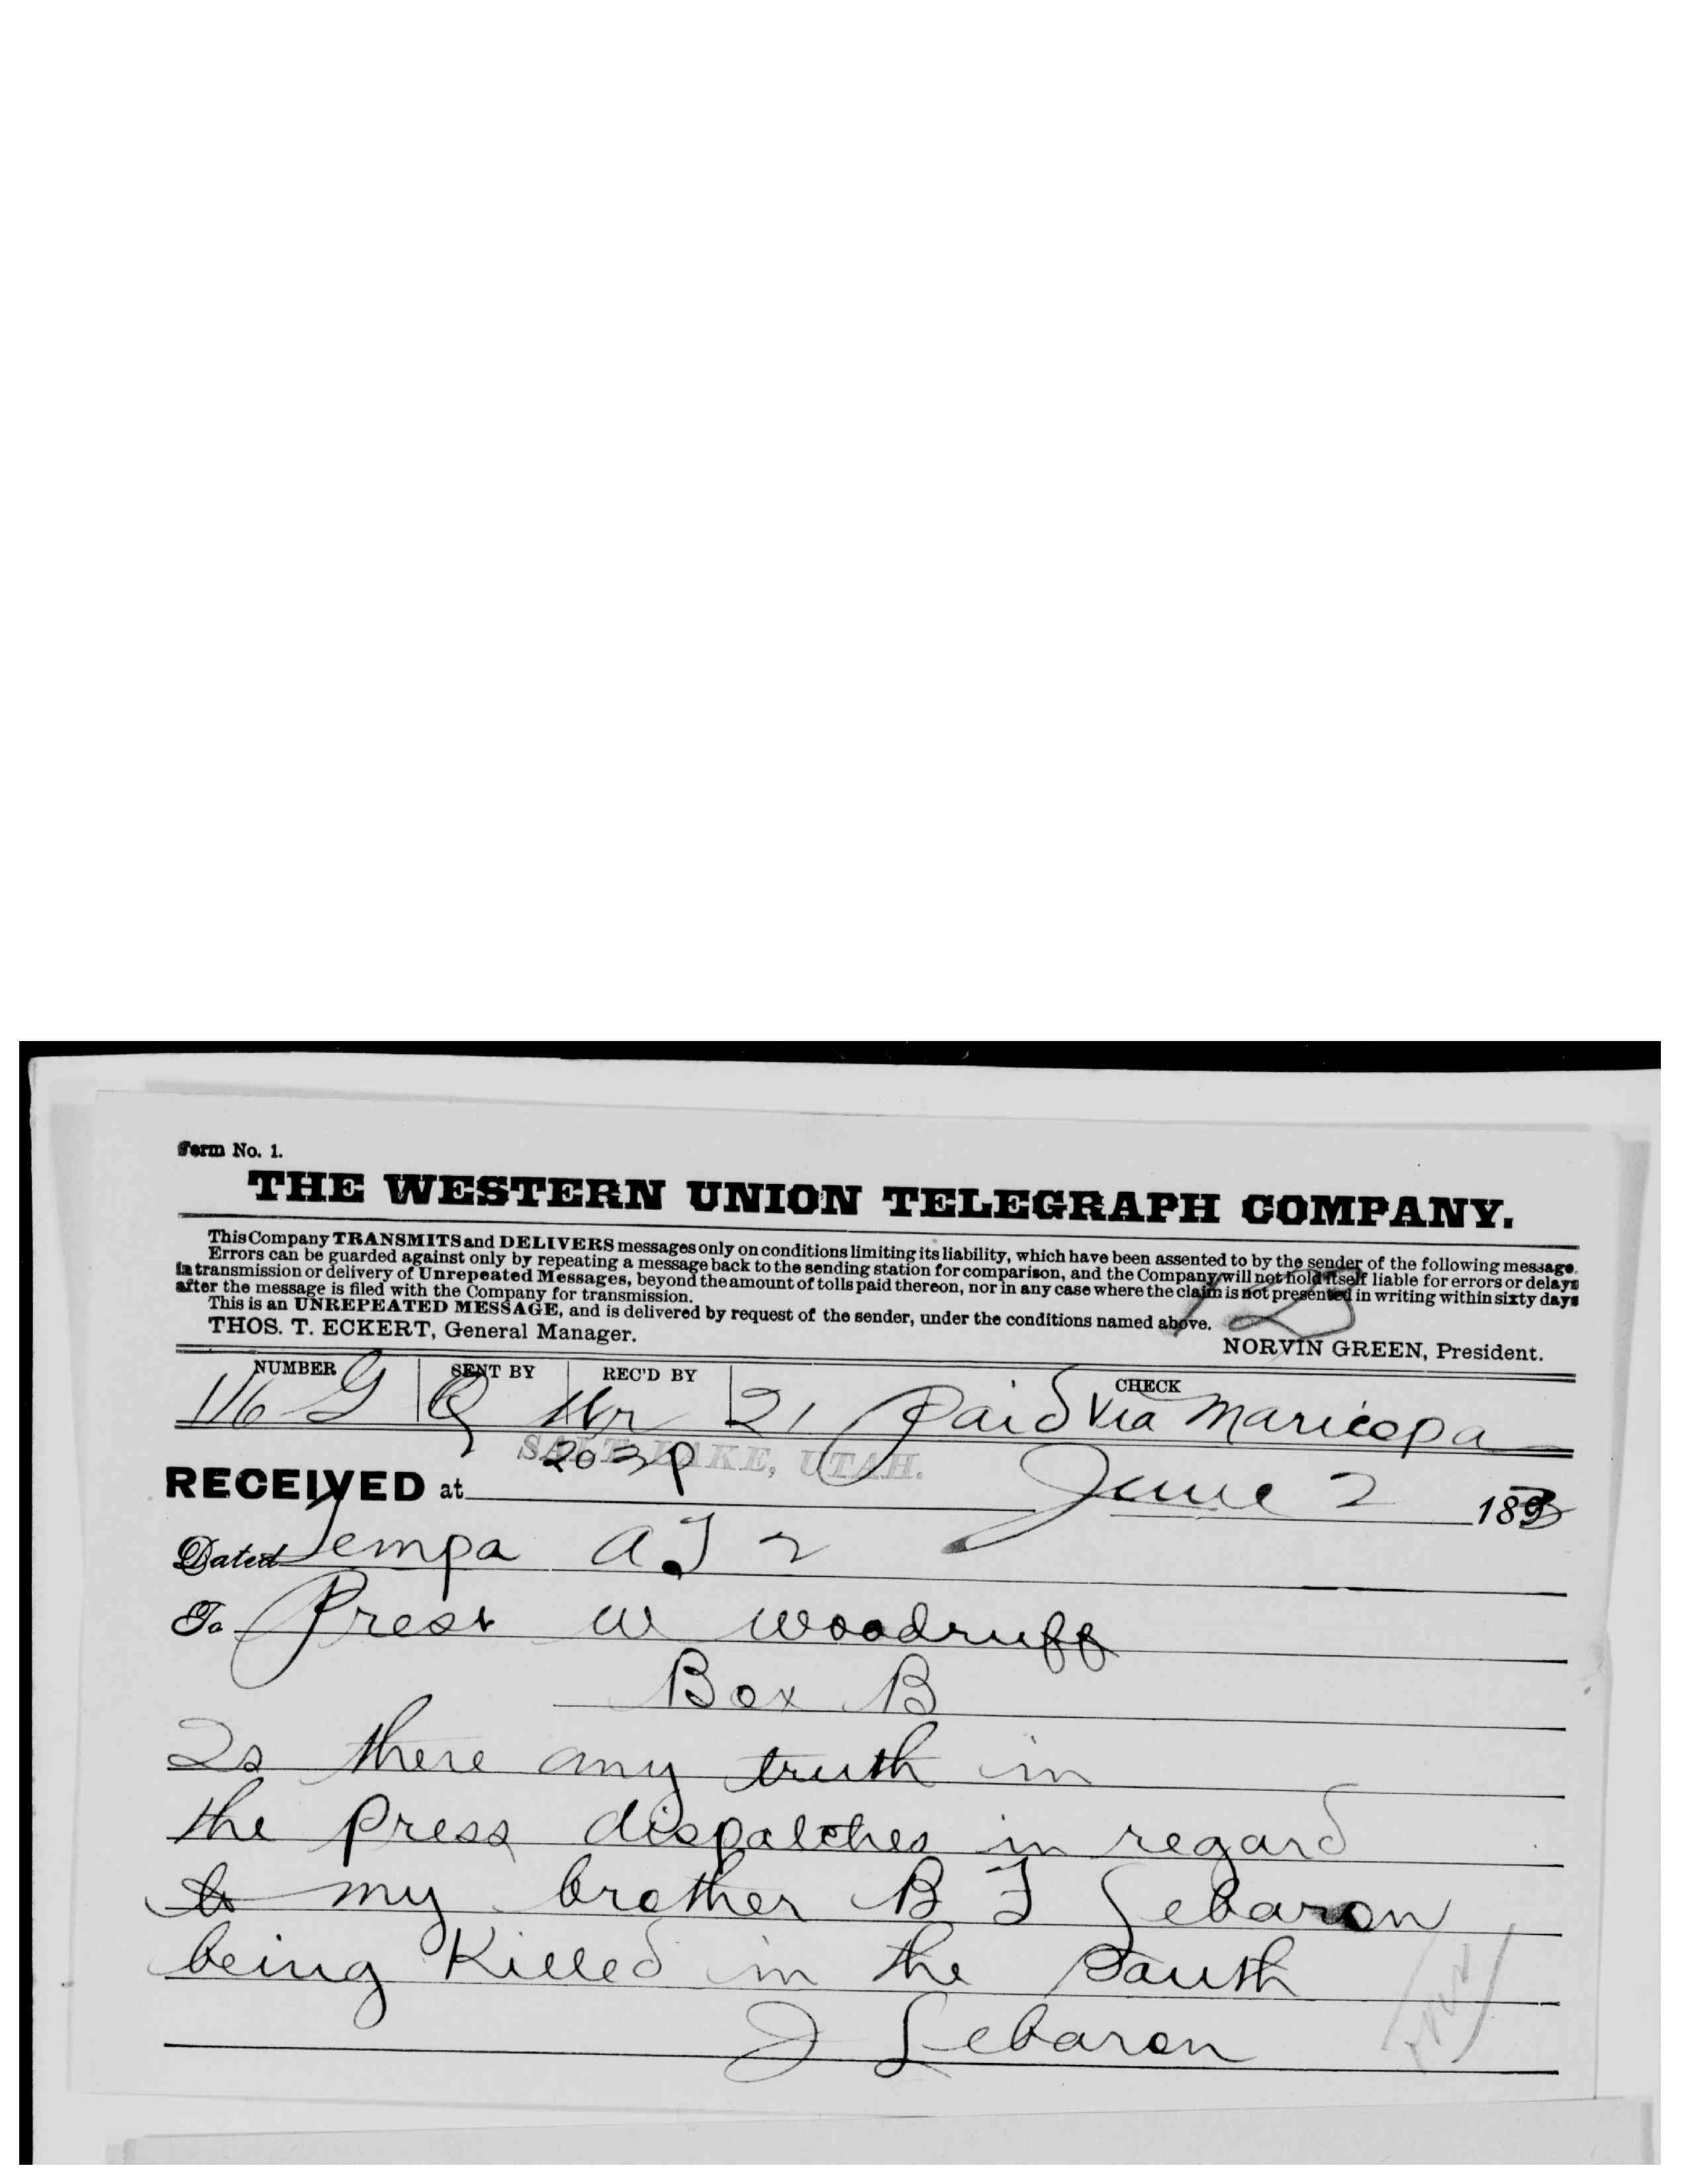 Form No. 1.
THE WESTERN UNION TELEGRAPH COMPANY.
This Company TRANSMITS and DELIVERS messages only on conditions limiting its liability, which have been assented to by the sender of the following message.
Errors can be guarded against only by repeating a message back to the sending station for comparison, and the Company will not hold itself liable for errors or delays
in transmission or delivery of Unrepeated Messages, beyond the amount of tolls paid thereon, nor in any case where the claim is not presented in writing within sixty days
after the message is filed with the Company for transmission.
This is an UNREPEATED MESSAGE, and is delivered by request of the sender, under the conditions named above.
THOS. T. ECKERT, General Manager.
NORVIN GREEN, President.
NUMBER SENT BY REC'D BY CHECK
116 G 21 Paid Via Maricopa
SALT LAKE, UTAH.
203P
RECEIVED at June 2 1893
Dated Tempa A.T 2
To Prest W Woodruff
Box B
Is there any truth in
the press dispatches in regard
to my brother B F Lebaron
being Killed in the South
J Lebaron